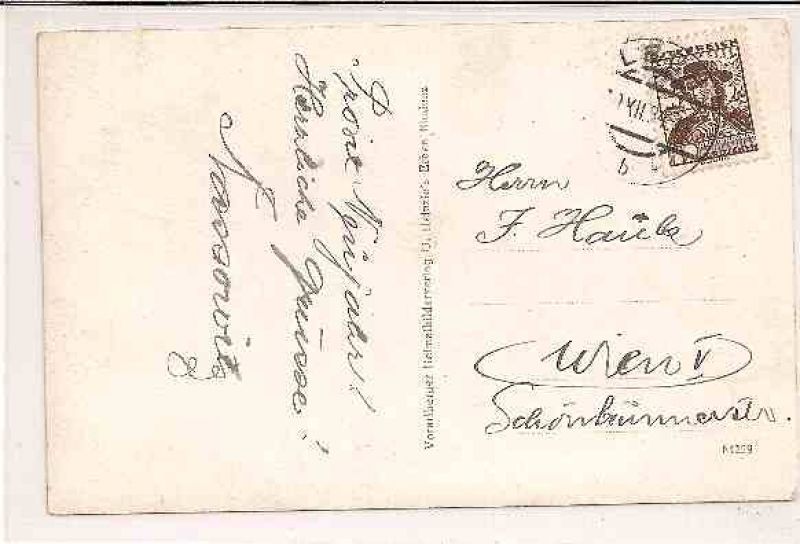 Prosit Neujahr!
Herzliche Grüsse!
Vorarlberger Heimatbilderverlag H. Heinzle's Erben, Bludenz
ÖSTERREICH
XII.3
b
Herrn
F. Hauke
Wien V
Schönbrunnerstr.